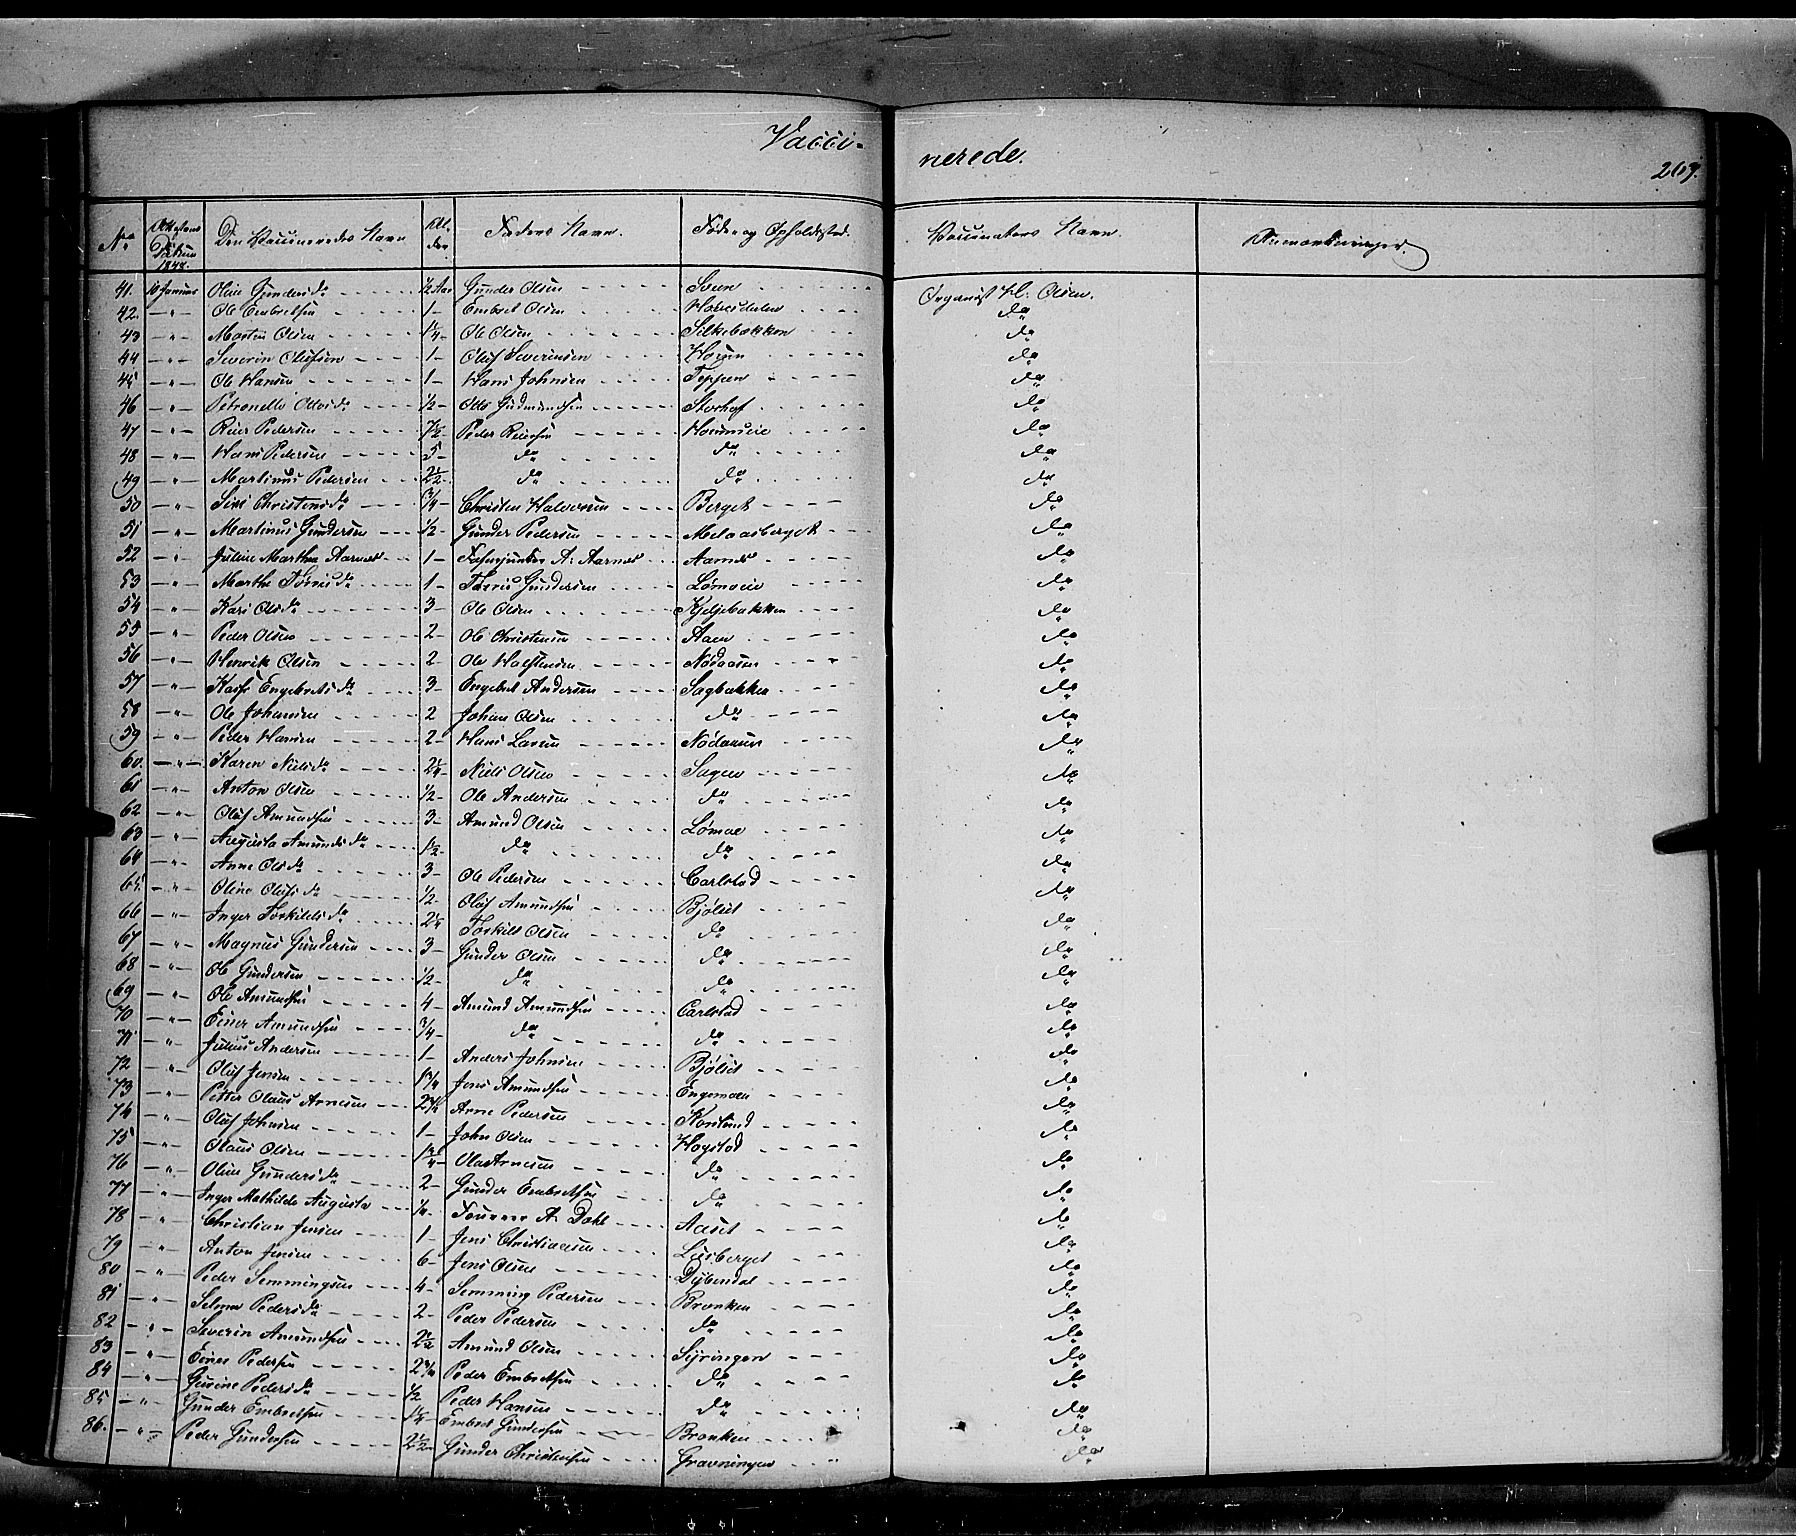 Vacci-
nerede.
269.
No Attestens Datum 1844. Den Vaccineredes Navn Al-der Faders Navn. Føde og Opholdssted. Vaccinators Navn. Anmærkninger.
41. 10 Januar Oline Gundersdr ½ Aar Gunder Olsen Organist H. Olsen.
42. — " — Ole Embretsen 1 — Embret Olsen do
43 — " — Morten Olsen 1¼ — Ole Olsen Silkebækken do
44 — " — Severin Olufsen 1 — Oluf Severinsen Hoeun do
45 — " — Ole Hansen 1 — Hans Johnsen Teppen do
46 — " — Petronelle Ottosdr ½ — Otto Gudmundsen Storhof do
47 — " — Reier Pedersen 7½ — Peder Reiersen do
48 — " — Hans Pedersen 5 — do do do
49 — " — Martinus Pedersen 2½ — do do do
50 — " — Siri Christensdr ¾ — Christen Halvorsen Berget do
51 — " — Martinus Gundersen ½ — Gunder Pedersen Melaasberget do
52 — " — Juline Marthea Aarnes 1 — Fahnejunker A. Aarnes Aarnes do
53 — " — Marthe Tørrisdr 1 — Tørris Gundersen Lømoeie do
54 — " — Kari Olsdr 3 — Ole Olsen Kjeljebækken do
55 — " — Peder Olsen 2 — Ole Christensen Aaen do
56 — " — Henrik Olsen 2 — Ole Halstensen Nødaasen do
57 — " — Kari Engebretsdr 3 — Engebret Andersen Sagbakken do
58 — " — Ole Johansen 2 Johan Olsen do do
59 — " — Peder Hansen 2 — Hans Larsen Nødaasen do
60. — " — Karen Nielsdr 2¼ — Niels Olsen Sagen do
61 — " — Anton Olsen ½ — Ole Andersen do do
62 — " — Oluf Amundsen 3 — Amund Olsen Lømoe do
63 — " — Augusta Amundsdr 1½ — do do do
64 — " — Anne Olsdr 3 — Ole Pedersen Carlstad do
65 — " — Oline Olufsdr ½ — Oluf Amundsen Bjølset do
66 — " — Inger Torkildsdr 2¼ — Torkild Olsen do do
67 — " — Magnus Gundersen 3 — Gunder Olsen do do
68 — " — Ole Gundersen ½ — do do do
69 — " — Ole Amundsen 4 — Amund Amundsen Carlstad do
70 — " — Einer Amundsen ¾ — do do do
71 — " — Julius Andersen 1 — Anders Johnsen Bjølset do
72 — " — Oluf Jensen Jens Amundsen Engemoen do
73 — " — Petter Olaus Arnesen 2¾ Arne Pedersen Konlund do
74 — " — Oluf Johnsen 1 — John Olsen Hogstad do
75 — " — Olaus Olsen Ola Arnesen do do
76 — " — Oline Gundersdr 2 — Gunder Embretsen do do
77 — " — Inger Mathilde Augusta ¼ — A. Dahl Aaset do
78 — " — Christian Jensen 1 — Jens Christiansen Lusberget do
79 — " — Anton Jensen 6 — Jens Olsen Dybendal do
80 — " — Peder Semmingsen 4 — Semming Pedersen Bronken do
81 — " — Selma Pedersdr 2 — Peder Pedersen do do
82 — " — Severin Amundsen 2½ Amund Olsen Syringen do
83 — " — Einer Pedersen 2¾ Peder Embretsen do do
84 — " — Gurine Pedersdr ½ Peder Hansen do do
85 — " — Gunder Embretsen 1¼ — Embret Gundersen Bronken do
86. — " — Peder Gundersen 2½ — Gunder Christensen Gravningen do